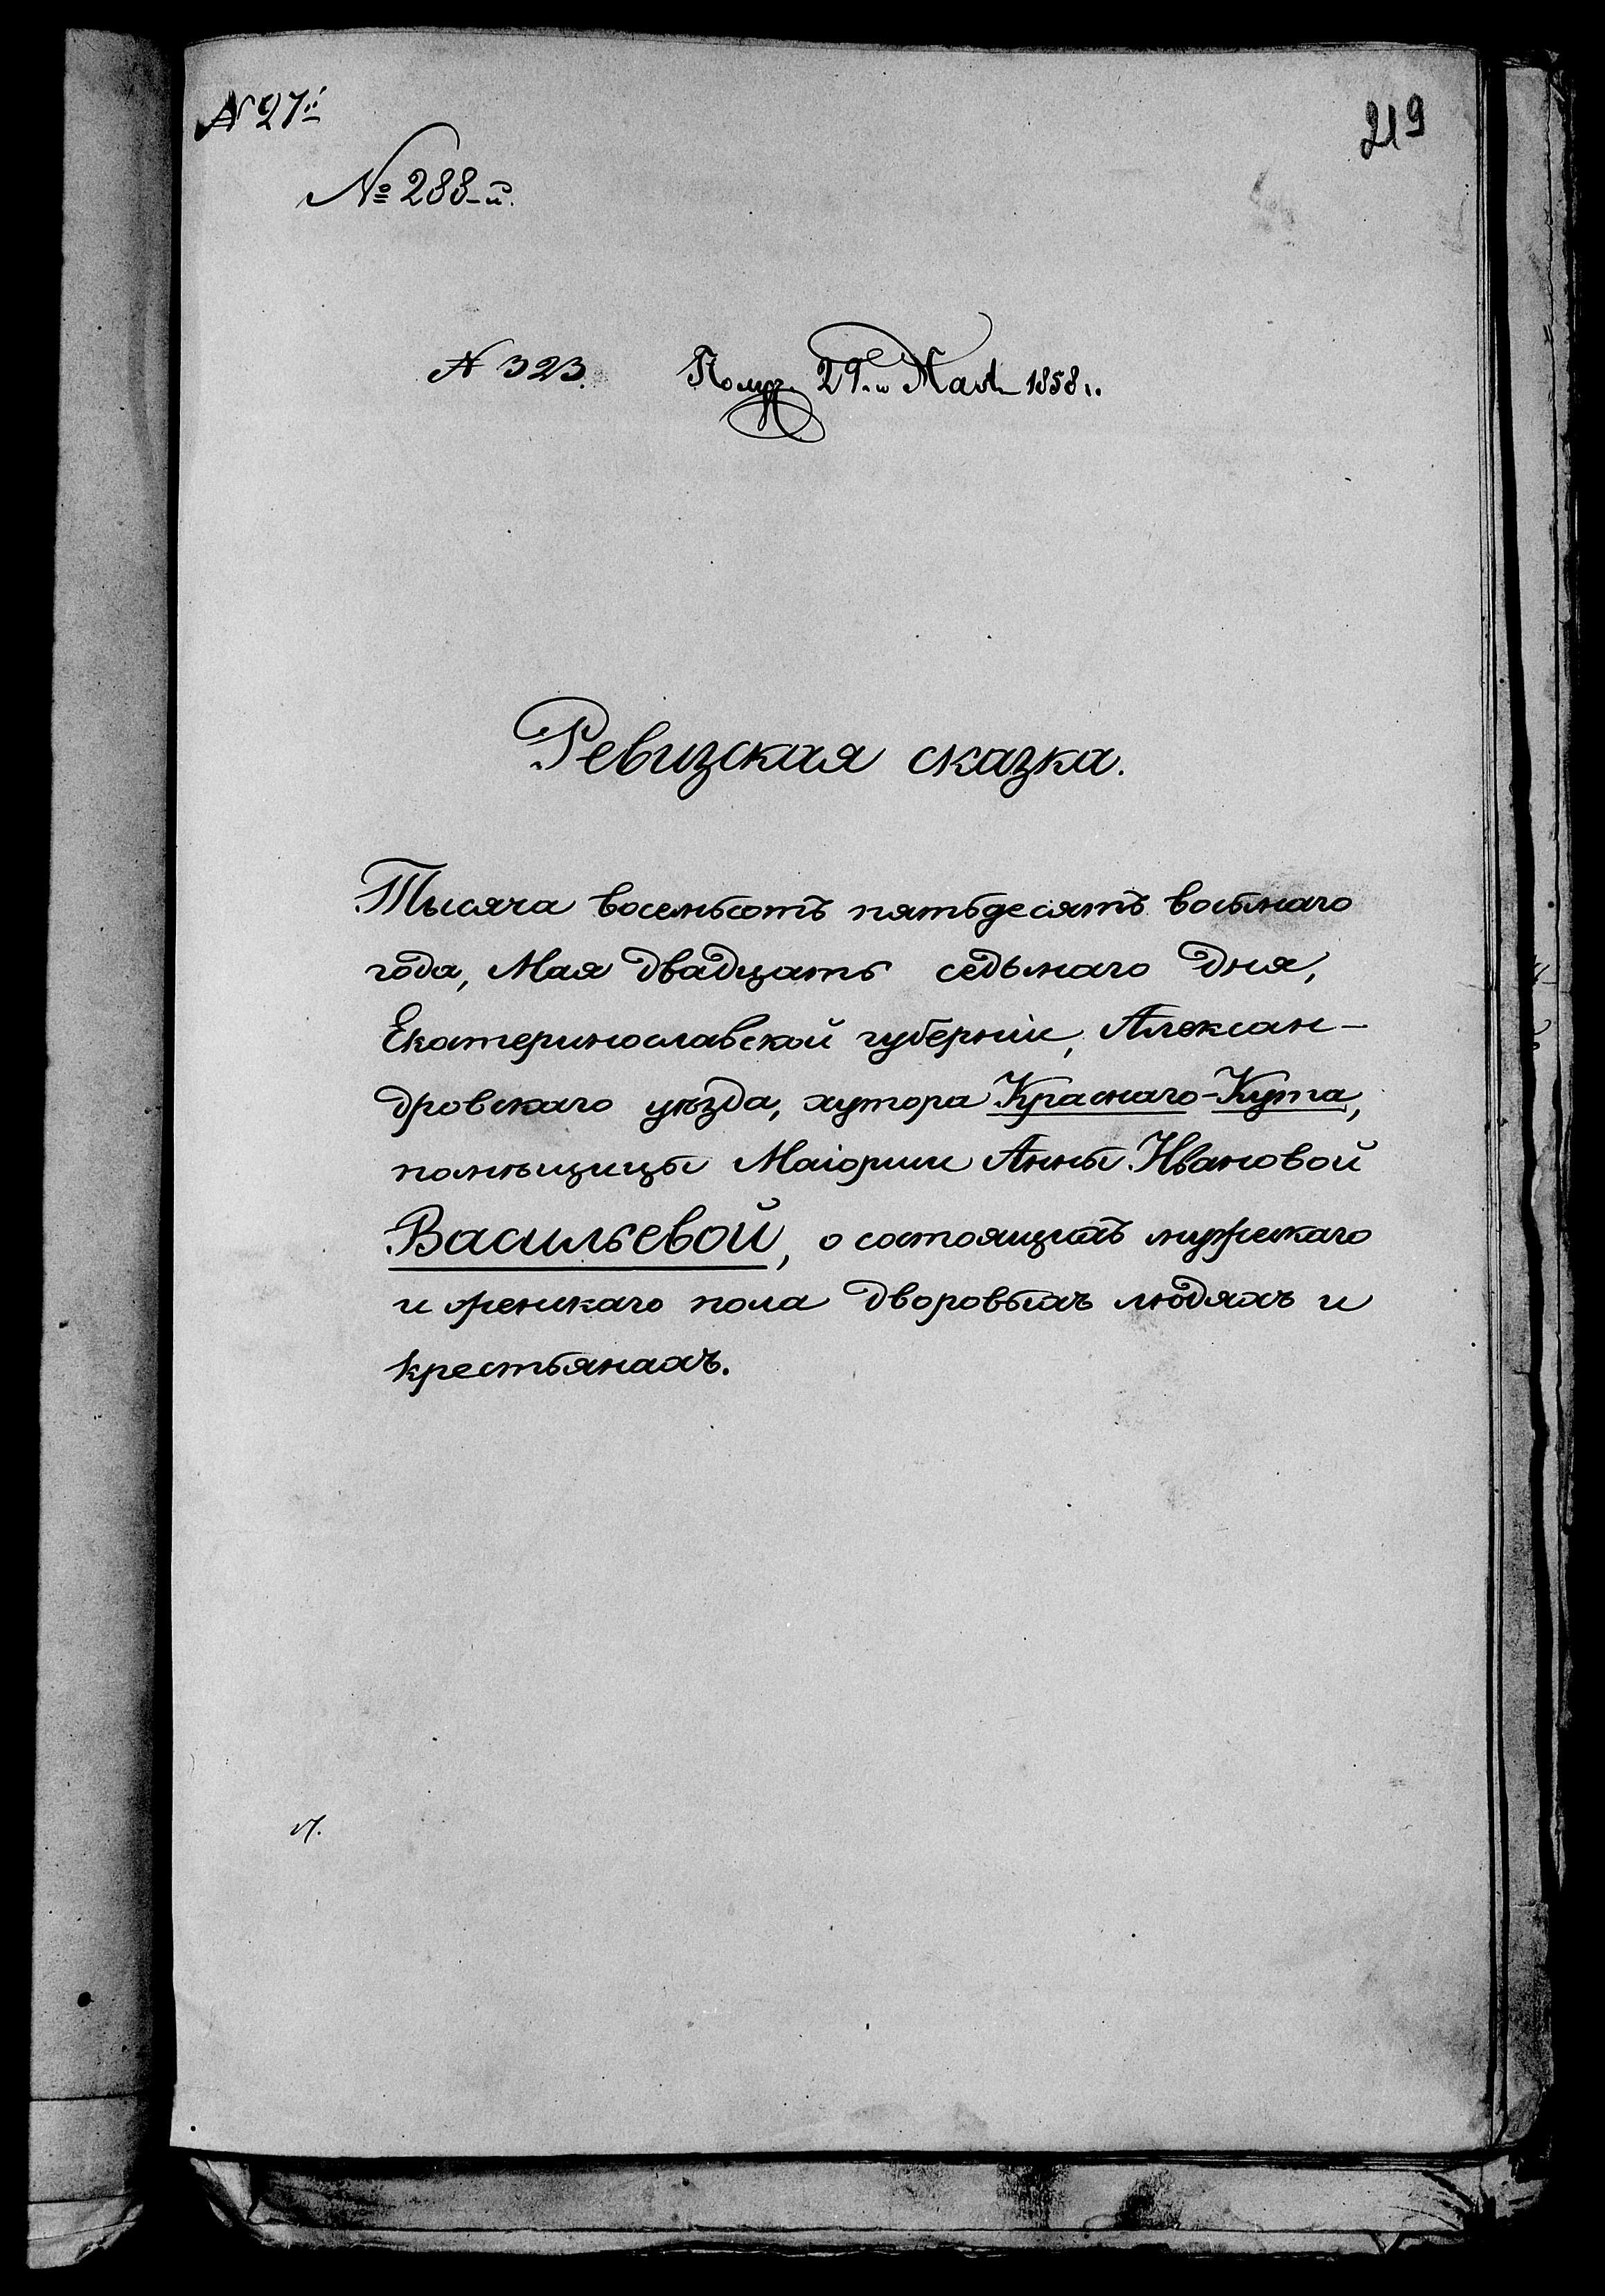 № 27й
219
№ 288-й.
№ 323. Получ. 29го Мая 1858 г.
Ревизская сказка.
Тысяча восемьсотъ пятьдесятъ восьмаго
года, Мая двадцать седьмаго дня,
Екатеринославской губерніи, Алексан-
дровскаго уѣзда, хутора Краснаго-Кута,
помѣщицы Маіорши Анны Ивановой
Васильевой, о состоящихъ мужескаго
и женскаго пола дворовыхъ людяхъ и
крестьянахъ.